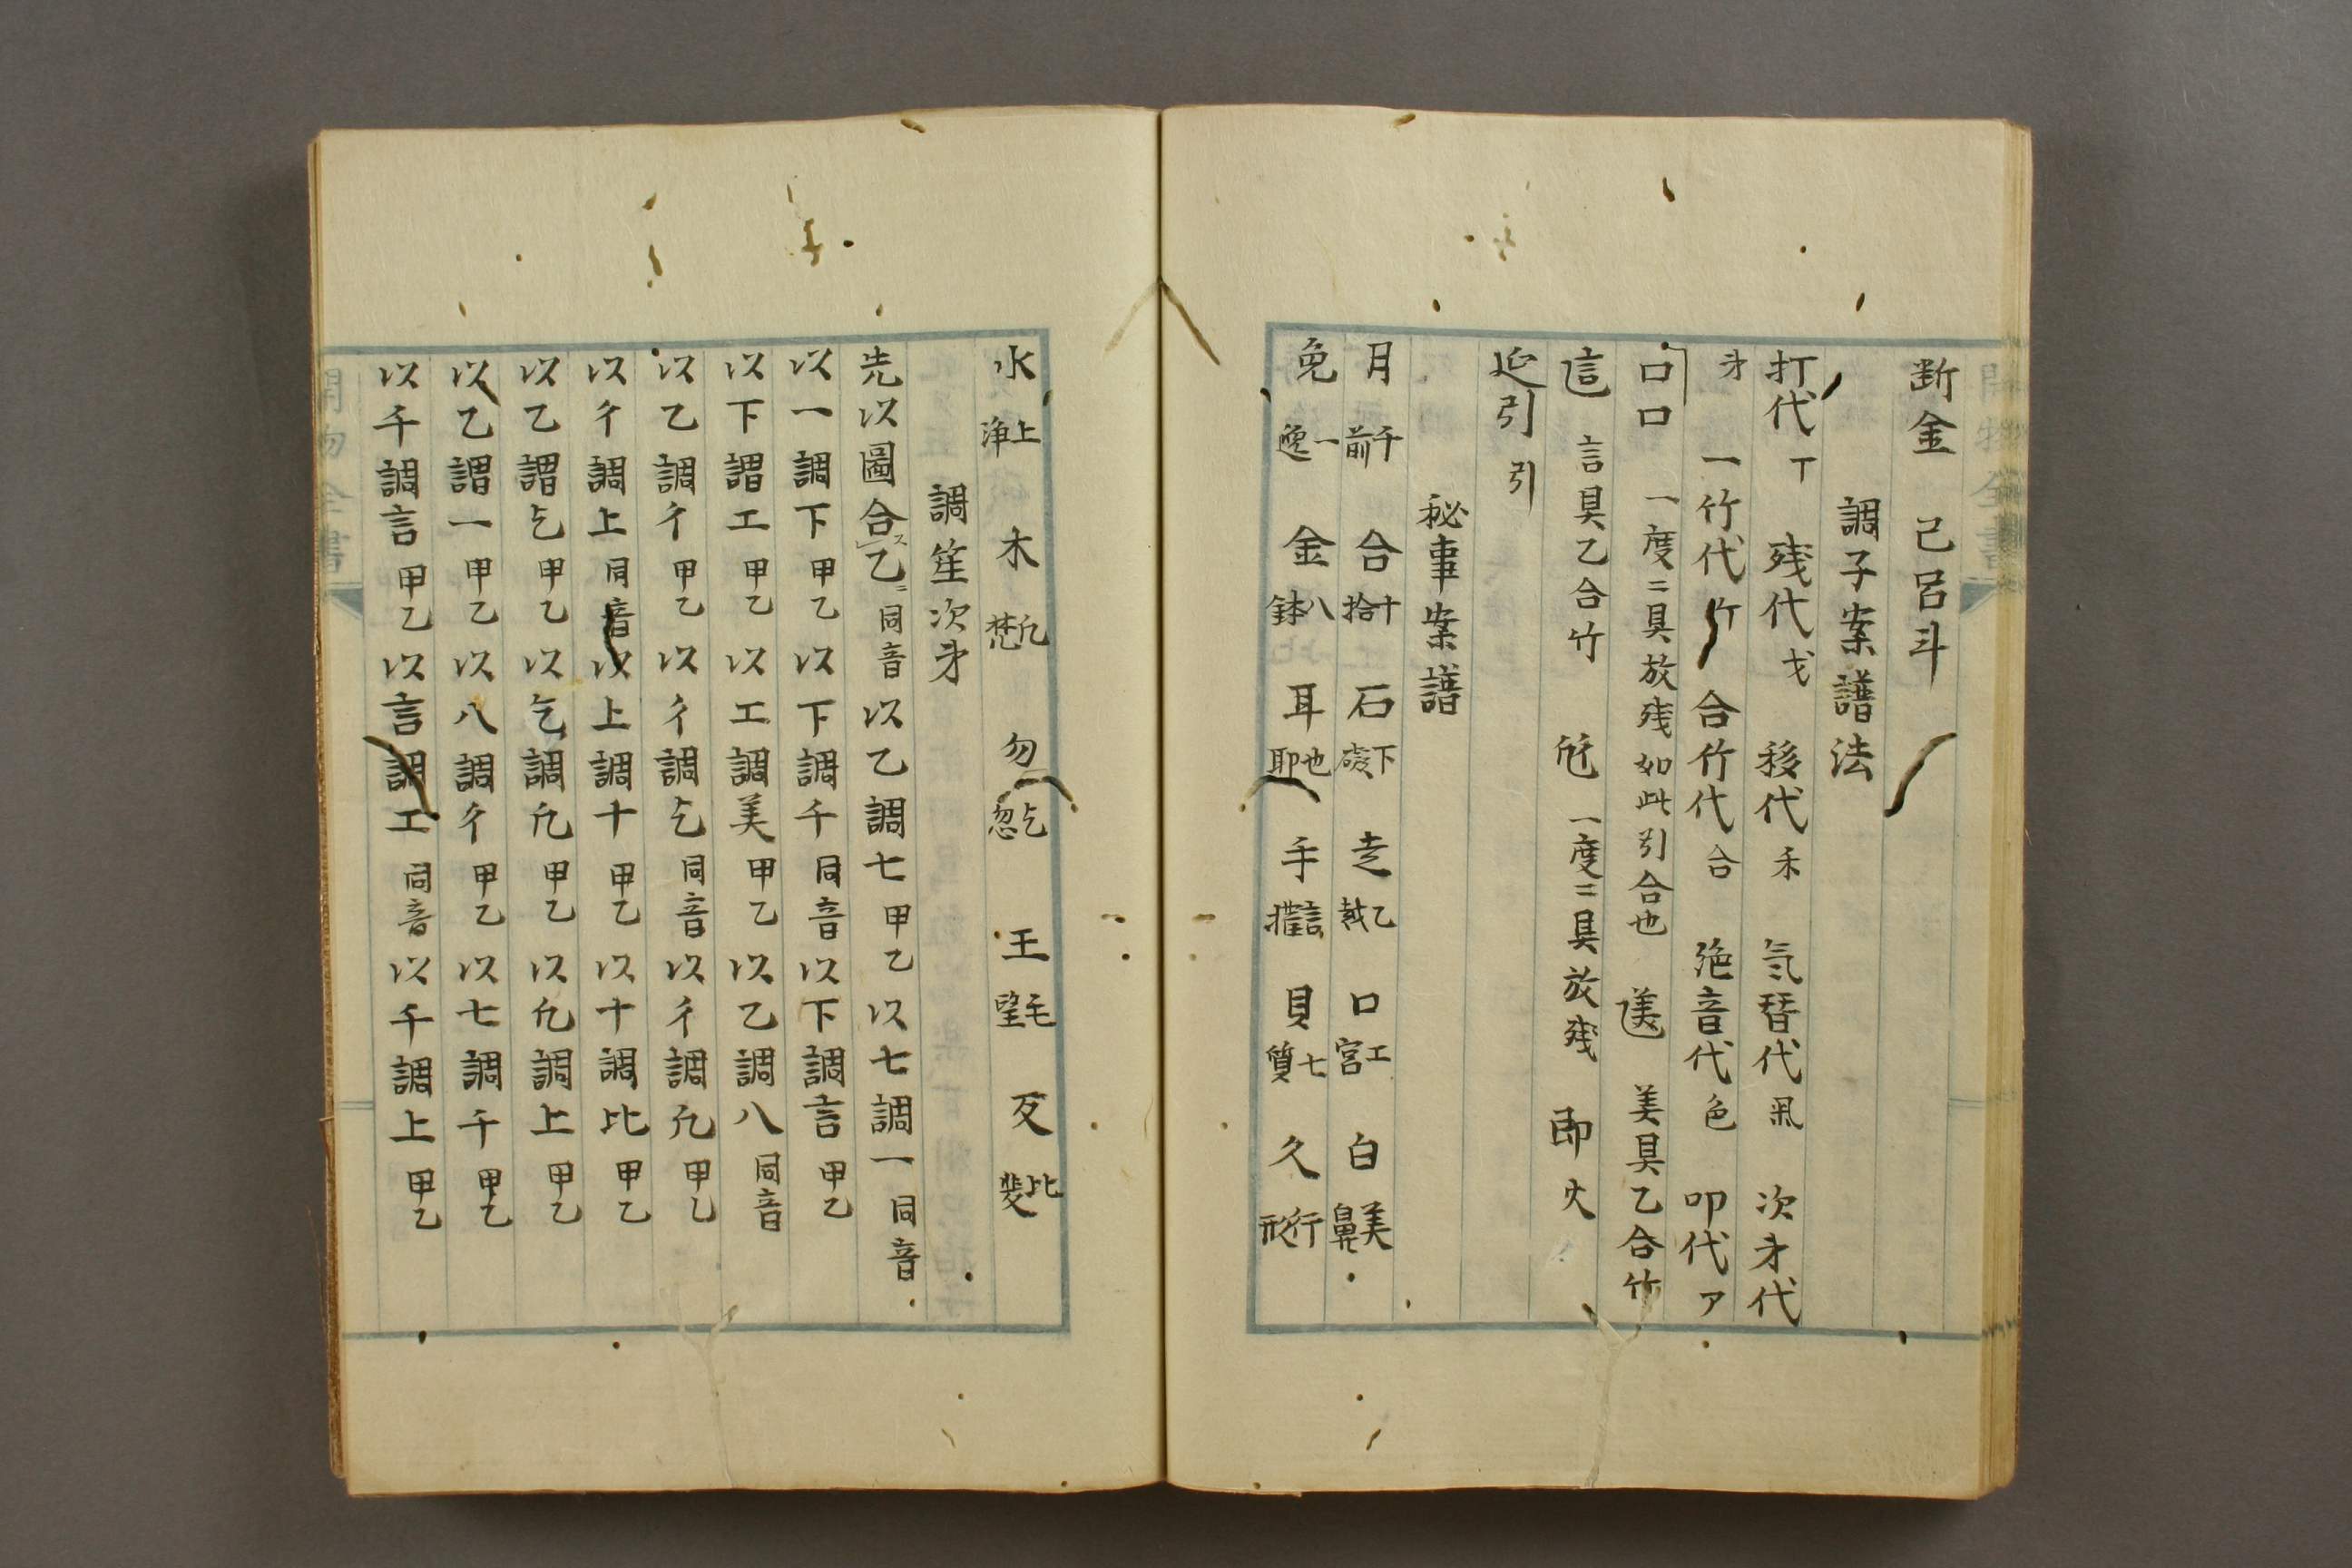 断金　己呂斗
調子案譜法
打代丁　残代戈　移代禾　気替代氣　次㐧代
㐧　一竹代竹　合竹代合　絶音代色　叩代ア
口口　一度ニ具放残如此引合也　美具乙合竹
言具乙合竹　一度ニ具放残　即火
延引　引
秘事案譜
月前千　合拾十　石礙下　走越乙　口宮工　白鼻美
免逸一　金鉢八　耳耶也　手言　貝質七　久形行
水浄上　木凢　勿忽乞　王望毛　斐比
調笙次㐧
先以圖合乙ニ同音以乙調七甲乙以七調一同音
以一調下甲乙以下調千同音以下調言甲乙
以下調工甲乙以工調美甲乙以乙調八同音
以乙調彳甲乙以彳調乞同音以彳調凢甲乙
以彳調上同音以上調十甲乙以十調比甲乙
以乙調乞甲乙以乞調凢甲乙以凢調上甲乙
以乙調一甲乙以八調彳甲乙以七調千甲乙
以千調言甲乙以言調工同音以千調上甲乙